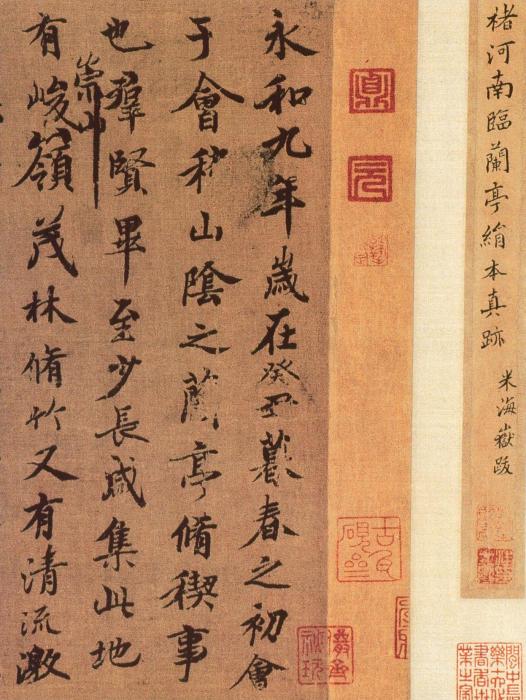 褚河南臨蘭亭絹本真跡
米海嶽跋
永和九年歲在癸丑暮春之初會
于會稽山陰之蘭亭脩稧事
也羣賢畢至少長咸集此地
崇山
有峻領茂林脩竹又有清流激